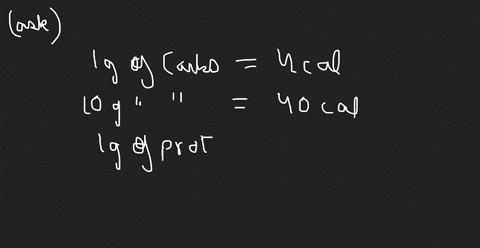 (ask)
1g of Carbs = 4cal
10g " " = 40cal
1g of prot